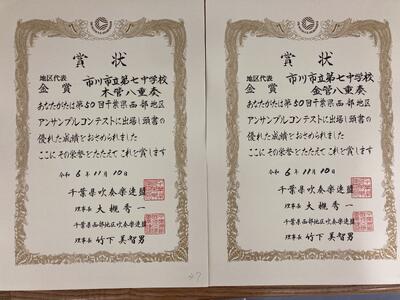 賞状
地区代表
金賞
市川市立第七中学校
木管八重奏
あなたがたは第50回千葉県西部地区
アンサンブルコンテストに出場し頭書の
優れた成績をおさめられました
ここにその栄誉をたたえてこれを賞します
令和6年11月10日
千葉県吹奏楽連盟
理事長 大槻秀一
千葉県西部地区吹奏楽連盟
理事長 竹下美智男
賞状
地区代表
金賞
市川市立第七中学校
金管八重奏
あなたがたは第50回千葉県西部地区
アンサンブルコンテストに出場し頭書の
優れた成績をおさめられました
ここにその栄誉をたたえてこれを賞します
令和6年11月10日
千葉県吹奏楽連盟
理事長 大槻秀一
千葉県西部地区吹奏楽連盟
理事長 竹下美智男